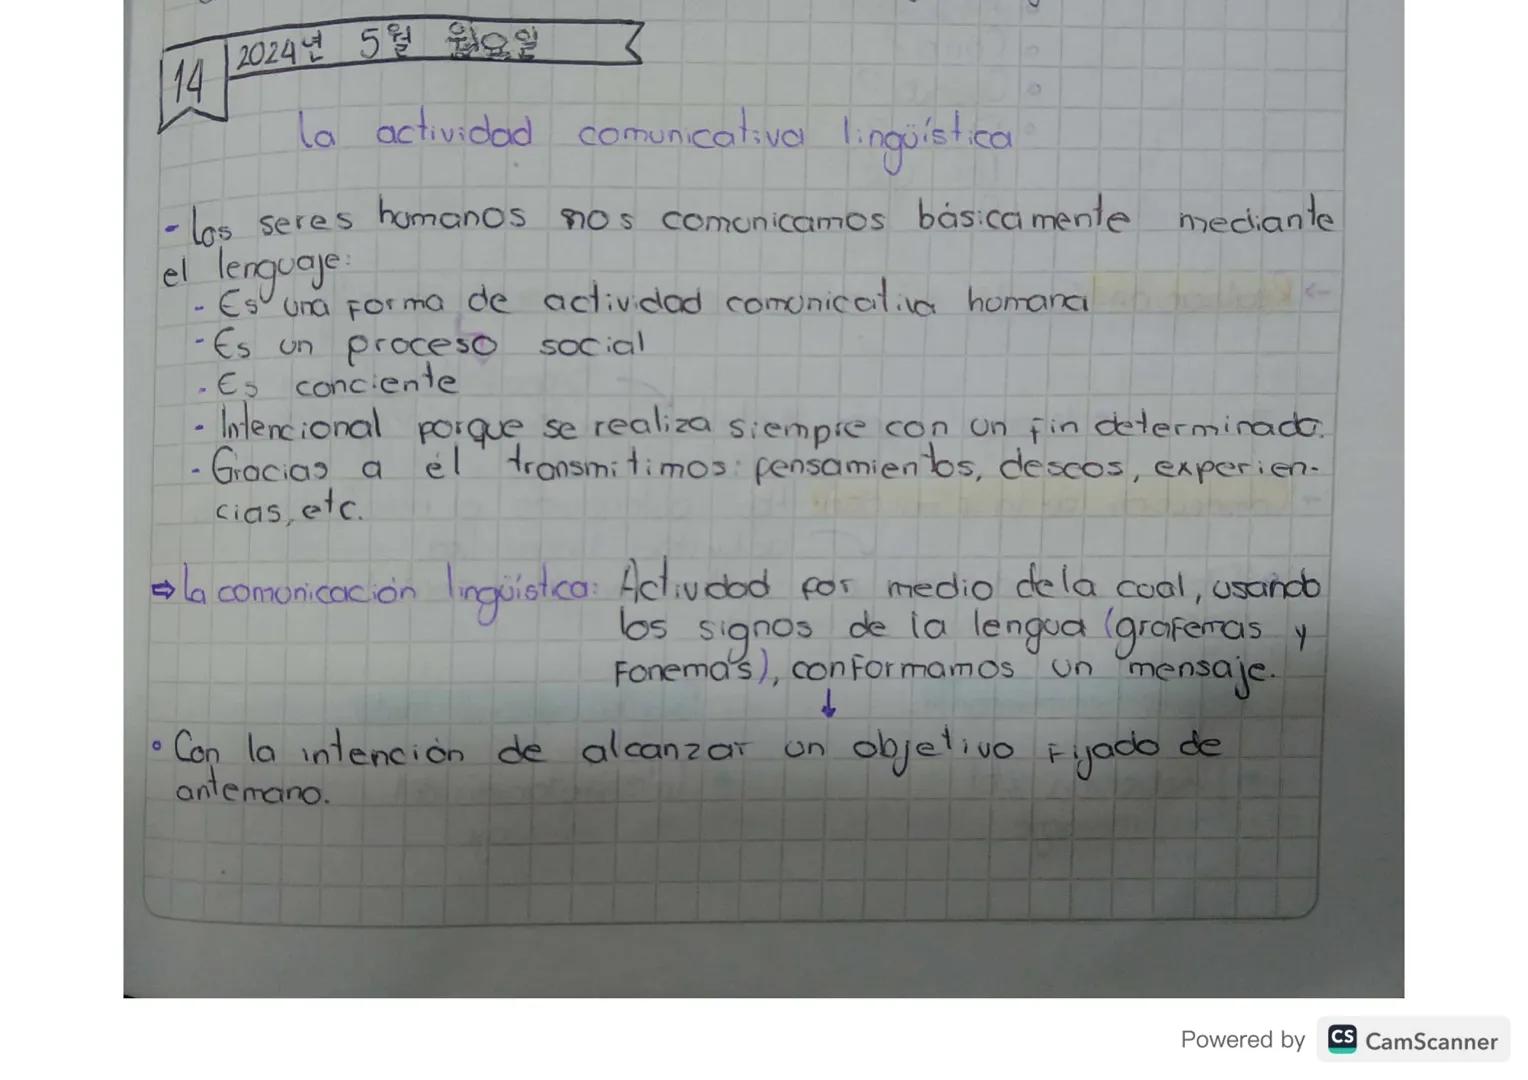 14
2024년 5월 월요일
la actividad comunicativa lingüística
- Los seres humanos nos comunicamos básicamente mediante
el lenguaje:
- Es una forma de actividad comunicativa humana
- Es un proceso social
- Es conciente
- Intencional porque se realiza siempre con un fin determinado.
- Gracias a él transmitimos: pensamientos, deseos, experien-
cias, etc.
⇒ La comunicación lingüística: Actividad por medio de la cual, usando
los signos de la lengua (grafemas y
Fonemas), conformamos un mensaje.
↓
• Con la intención de alcanzar un objetivo Fijado de
antemano.
Powered by CS CamScanner